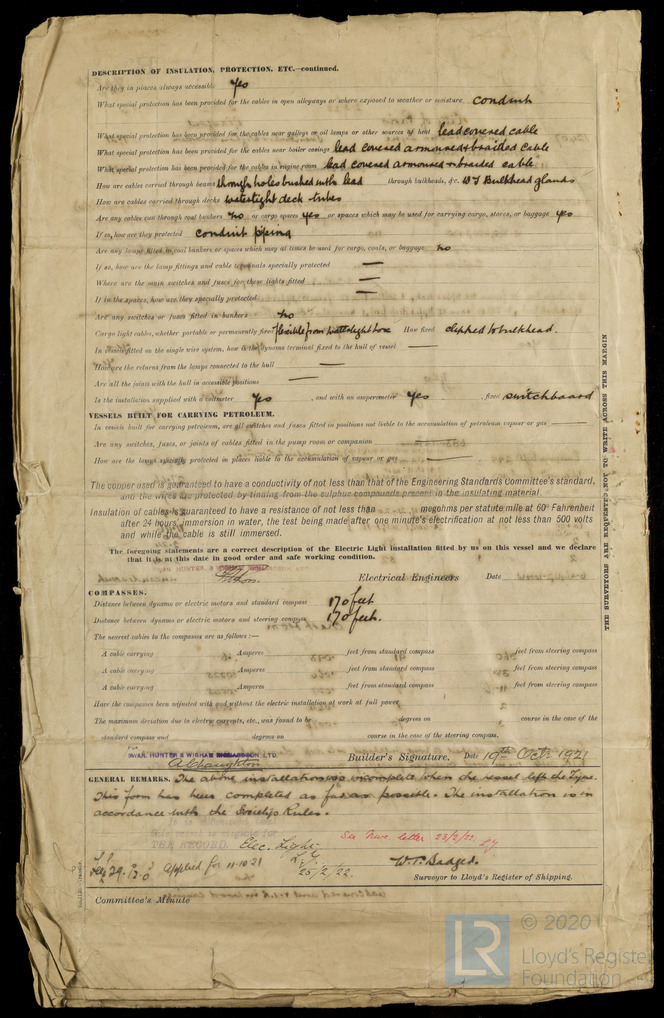 DESCRIPTION OF INSULATION, PROTECTION, ETC.—continued.
Are they in places always accessible Yes
What special protection has been provided for the cables in open alleyways or where exposed to weather or moisture, conduit
What special protection has been provided for the cables near galleys or oil lamps or other sources of heat lead covered cable
What special protection has been provided for the cables near boiler casings lead covered armoured & braided cable
What special protection has been provided for the cables in engine room lead covered armoured & braided cable
How are cables carried through beams through holes bushed with lead through bulkheads, &c. W T Bulkhead glands
How are cables carried through decks watertight deck tubes
Are any cables run through coal bunkers no or cargo spaces yes or spaces which may be used for carrying cargo, stores, or baggage yes
If so, how are they protected conduit piping
Are any lamps fitted in coal bunkers or spaces which may at times be used for cargo, coals, or baggage no
If so, how are the lamp fittings and cable terminals specially protected —
Where are the main switches and fuses for these lights fitted —
If in the spaces, how are they specially protected —
Are any switches or fuses fitted in bunkers no
Cargo light cables, whether portable or permanently fixed flexible from watertight box How fixed clipped to bulkhead.
In vessels fitted on the single wire system, how is the dynamo terminal fixed to the hull of vessel —
How are the returns from the lamps connected to the hull —
Are all the joints with the hull in accessible positions —
Is the installation supplied with a voltmeter Yes , and with an amperemeter Yes , fixed switchboard
VESSELS BUILT FOR CARRYING PETROLEUM.
In vessels built for carrying petroleum, are all switches and fuses fitted in positions not liable to the accumulation of petroleum vapour or gas —
Are any switches, fuses, or joints of cables fitted in the pump room or companion —
How are the lamps specially protected in places liable to the accumulation of vapour or gas —
The copper used is guaranteed to have a conductivity of not less than that of the Engineering Standards Committee's standard,
and the wires are protected by tinning from the sulphur compounds present in the insulating material.
Insulation of cables is guaranteed to have a resistance of not less than megohms per statute mile at 60° Fahrenheit
after 24 hours immersion in water, the test being made after one minute's electrification at not less than 500 volts
and while the cable is still immersed.
The foregoing statements are a correct description of the Electric Light installation fitted by us on this vessel and we declare
that it is at this date in good order and safe working condition.
Electrical Engineers Date
COMPASSES.
Distance between dynamo or electric motors and standard compass 170 feet
Distance between dynamo or electric motors and steering compass 170 feet.
The nearest cables to the compasses are as follows:—
A cable carrying Amperes feet from standard compass feet from steering compass
A cable carrying Amperes feet from standard compass feet from steering compass
A cable carrying Amperes feet from standard compass feet from steering compass
Have the compasses been adjusted with and without the electric installation at work at full power
The maximum deviation due to electric currents, etc., was found to be degrees on course in the case of the
standard compass and degrees on course in the case of the steering compass.
FOR
SWAN, HUNTER & WIGHAM RICHARDSON LTD.
Builder's Signature. Date 19th Oct. 1921
GENERAL REMARKS. The above installation was incomplete when the vessel left the Tyne.
This form has been completed as far as possible. The installation is in
accordance with the Society's Rules.
THE RECORD. Elec. Light
See Nwc. letter 23/2/22.
25/2/22.
29. 13. 0 Applied for 11.10.21
Surveyor to Lloyd's Register of Shipping.
Committee's Minute
THE SURVEYORS ARE REQUESTED NOT TO WRITE ACROSS THIS MARGIN
© 2020
LR
Lloyd's Register
Foundation